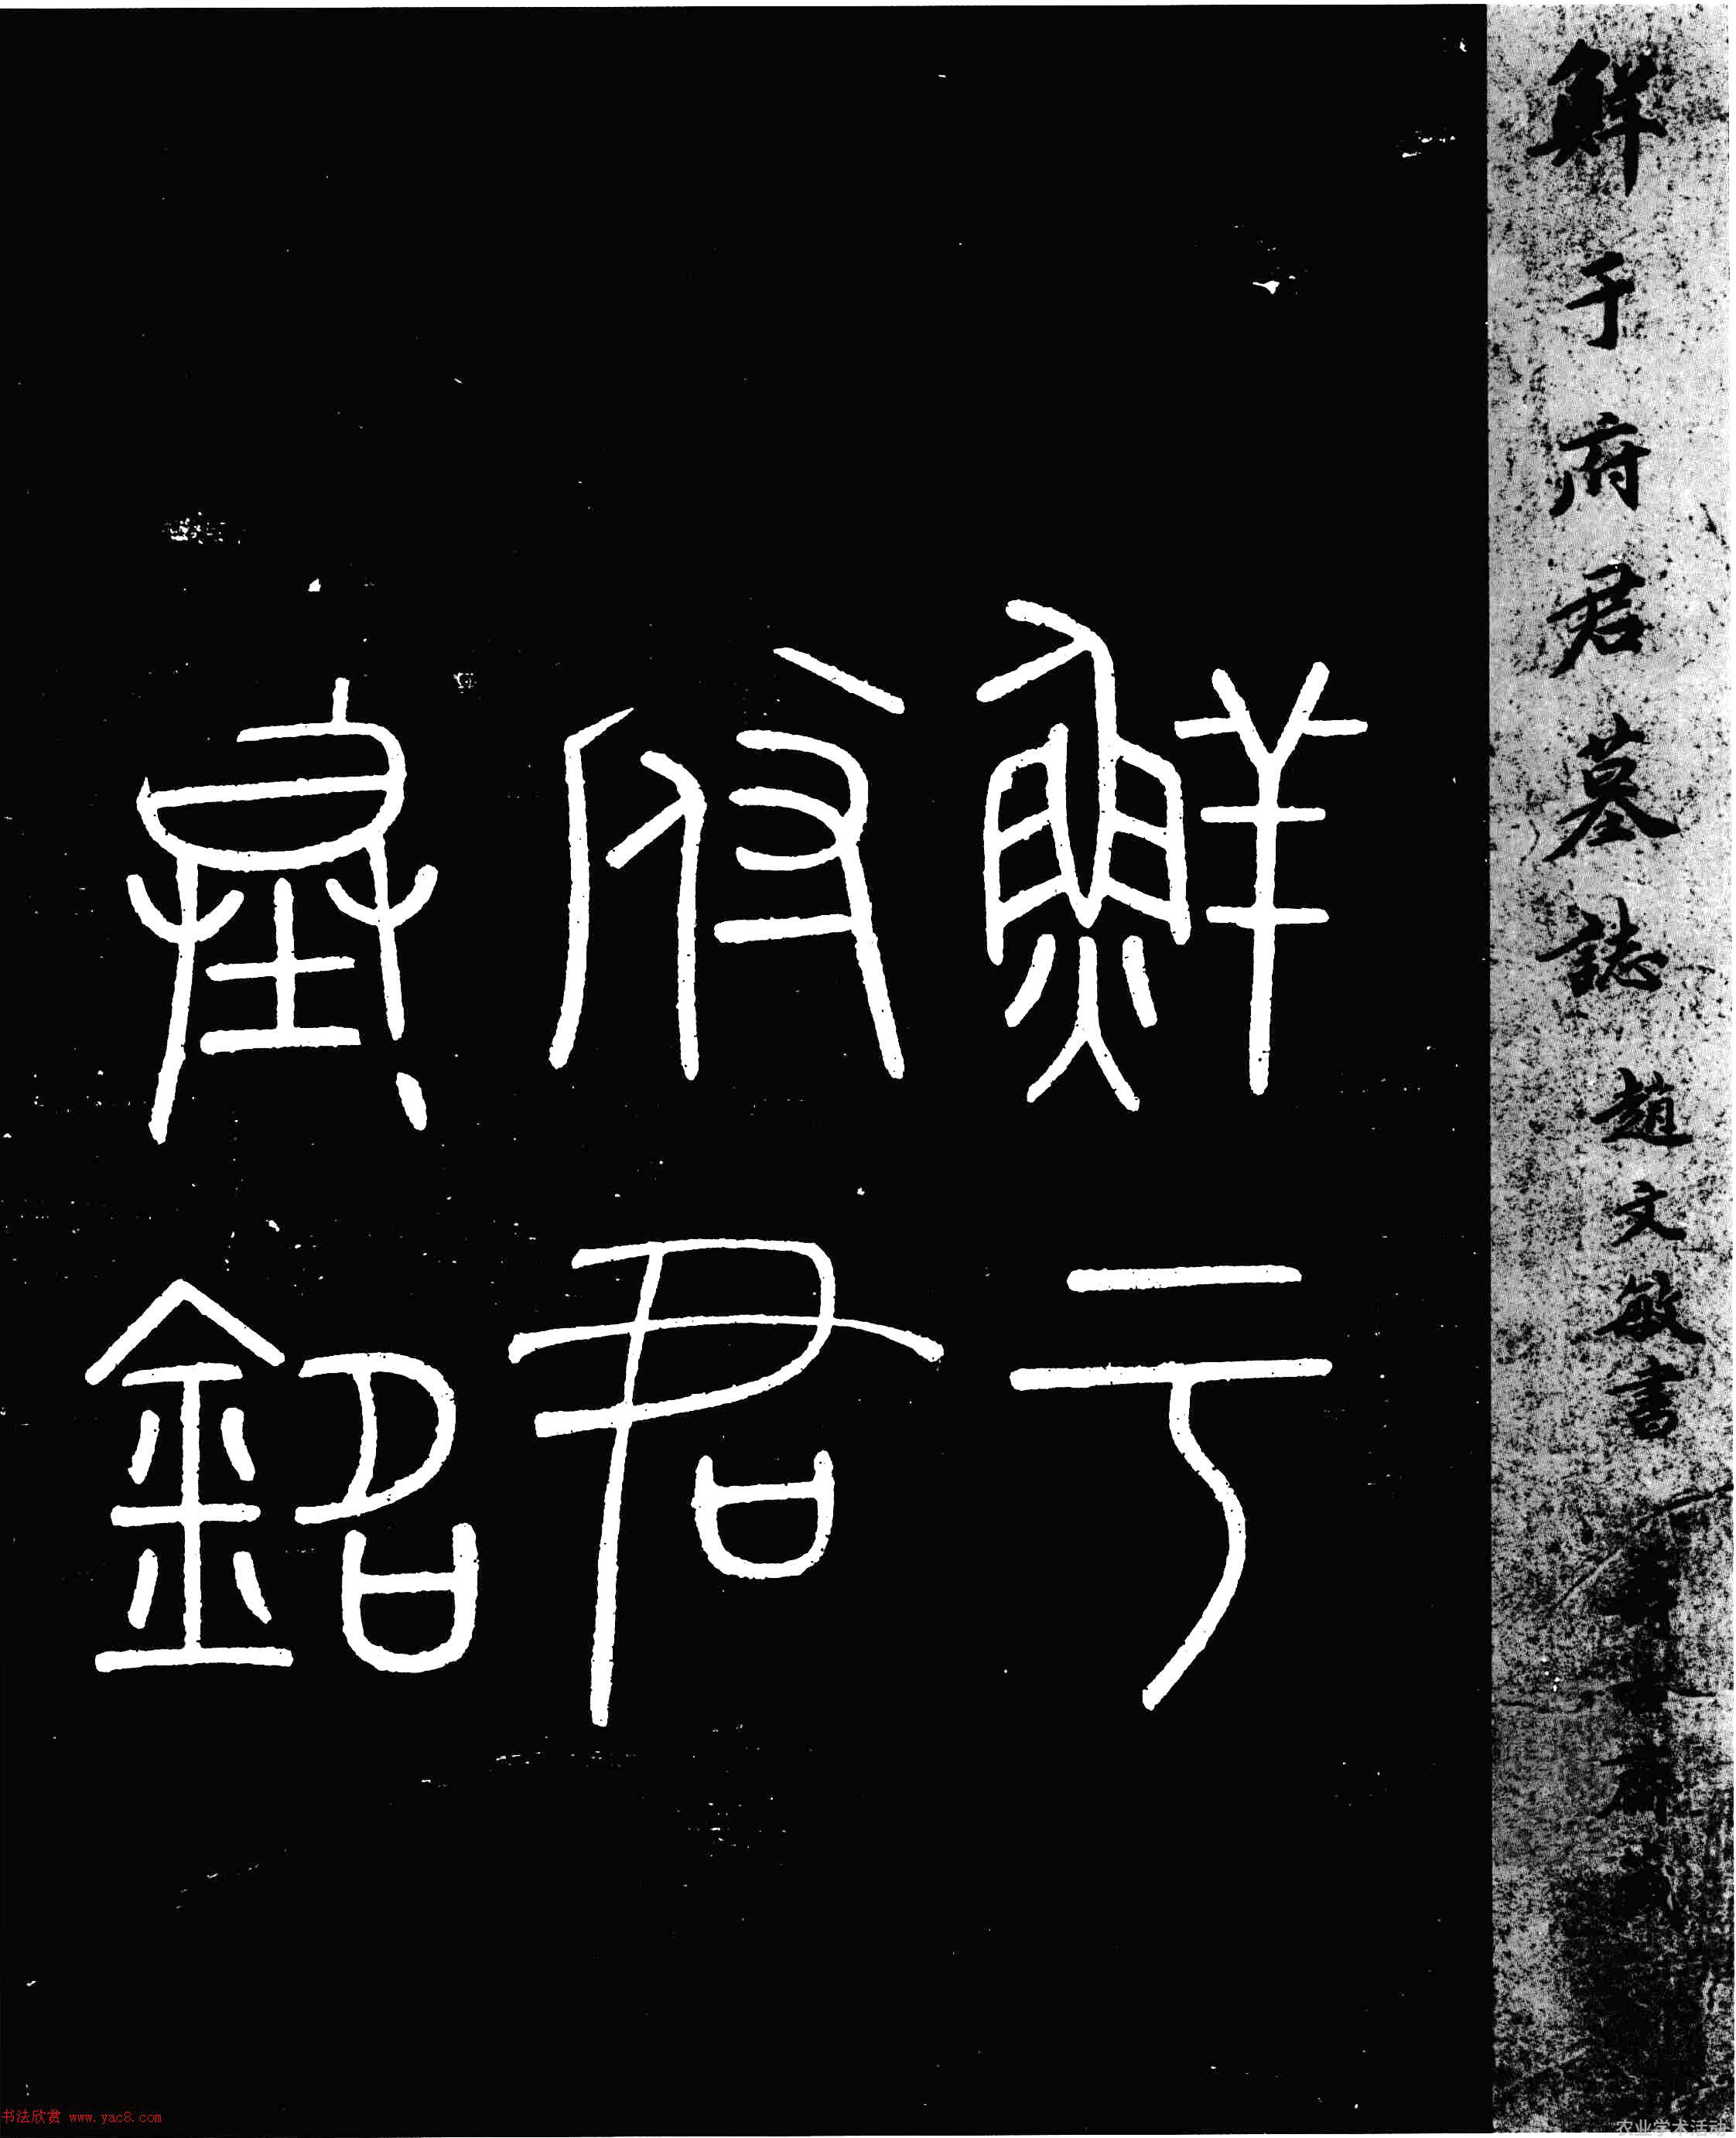 鮮于府君墓誌 趙文敏書
鮮于
府君
銘
书法欣赏 www.yac8.com
农业学术活动